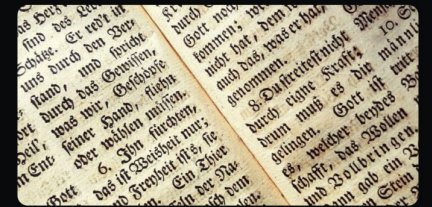 as Herz
sind des Leb
Schätze. Er red't in
uns durch den Ver-
stand, und spricht
durch das Gewissen,
was wir, Geschöpfe
seiner Hand, fliehn
oder wählen müssen.
6. Ihn fürchten,
das ist Weisheit nur;
und Freyheit ist's, sie
Ein Thier
Gott
durch
Gott noch
kommen;
nicht hat, dem
auch das, was er hat,
genommen.
8. Du streitest nicht
durch eigne Kraft;
drum muß es dir
gelingen. Gott ist
es, welcher beydes
schafft, das Wollen
und Vollbringen.
gab ein
Stein
10.